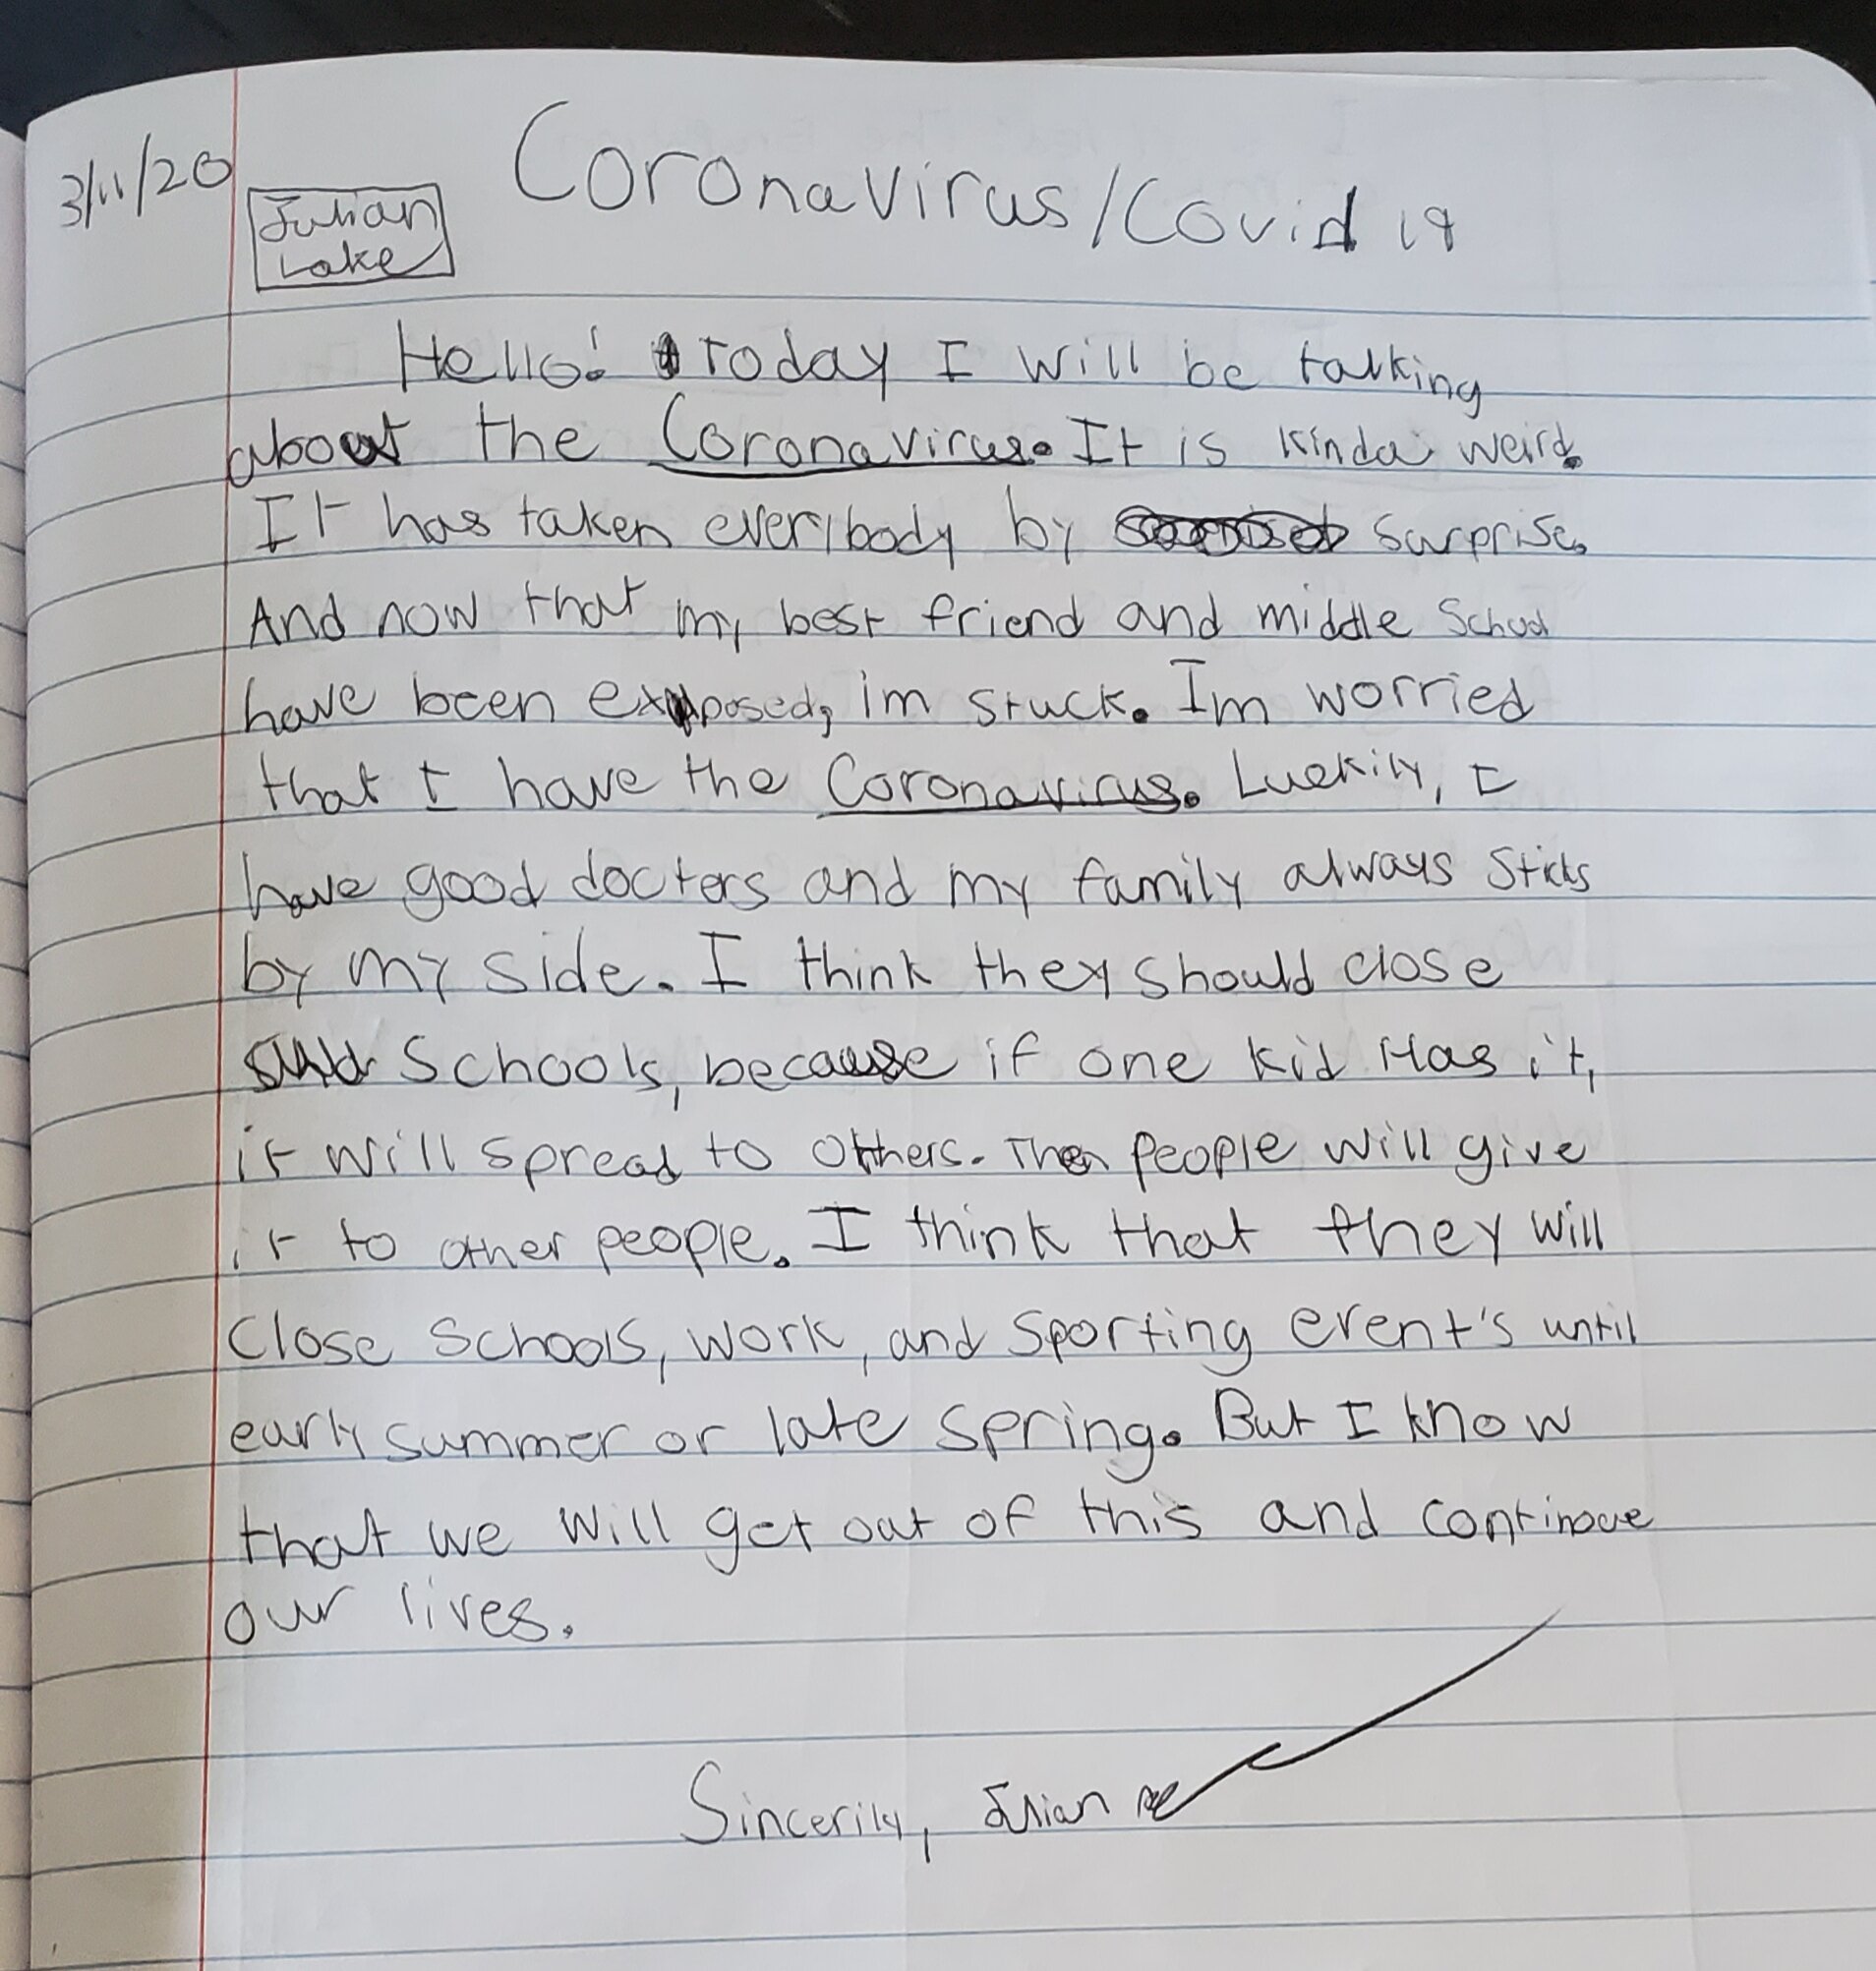 3/11/20
Julian
Lake
Coronavirus/Covid 19
Hello! Today I will be talking
about the Coronavirus. It is kinda weird.
It has taken everybody by surprise.
And now that my best friend and middle School
have been exposed, im stuck. Im worried
that I have the Coronavirus. Luckily, I
have good doctors and my family always Sticks
by my side. I think they should close
Schools, because if one kid Has it,
it will spread to others. Then people will give
it to other people. I think that they will
Close Schools, work, and Sporting event's until
early summer or late spring. But I know
that we will get out of this and continoue
our lives.
Sincerily, Julian